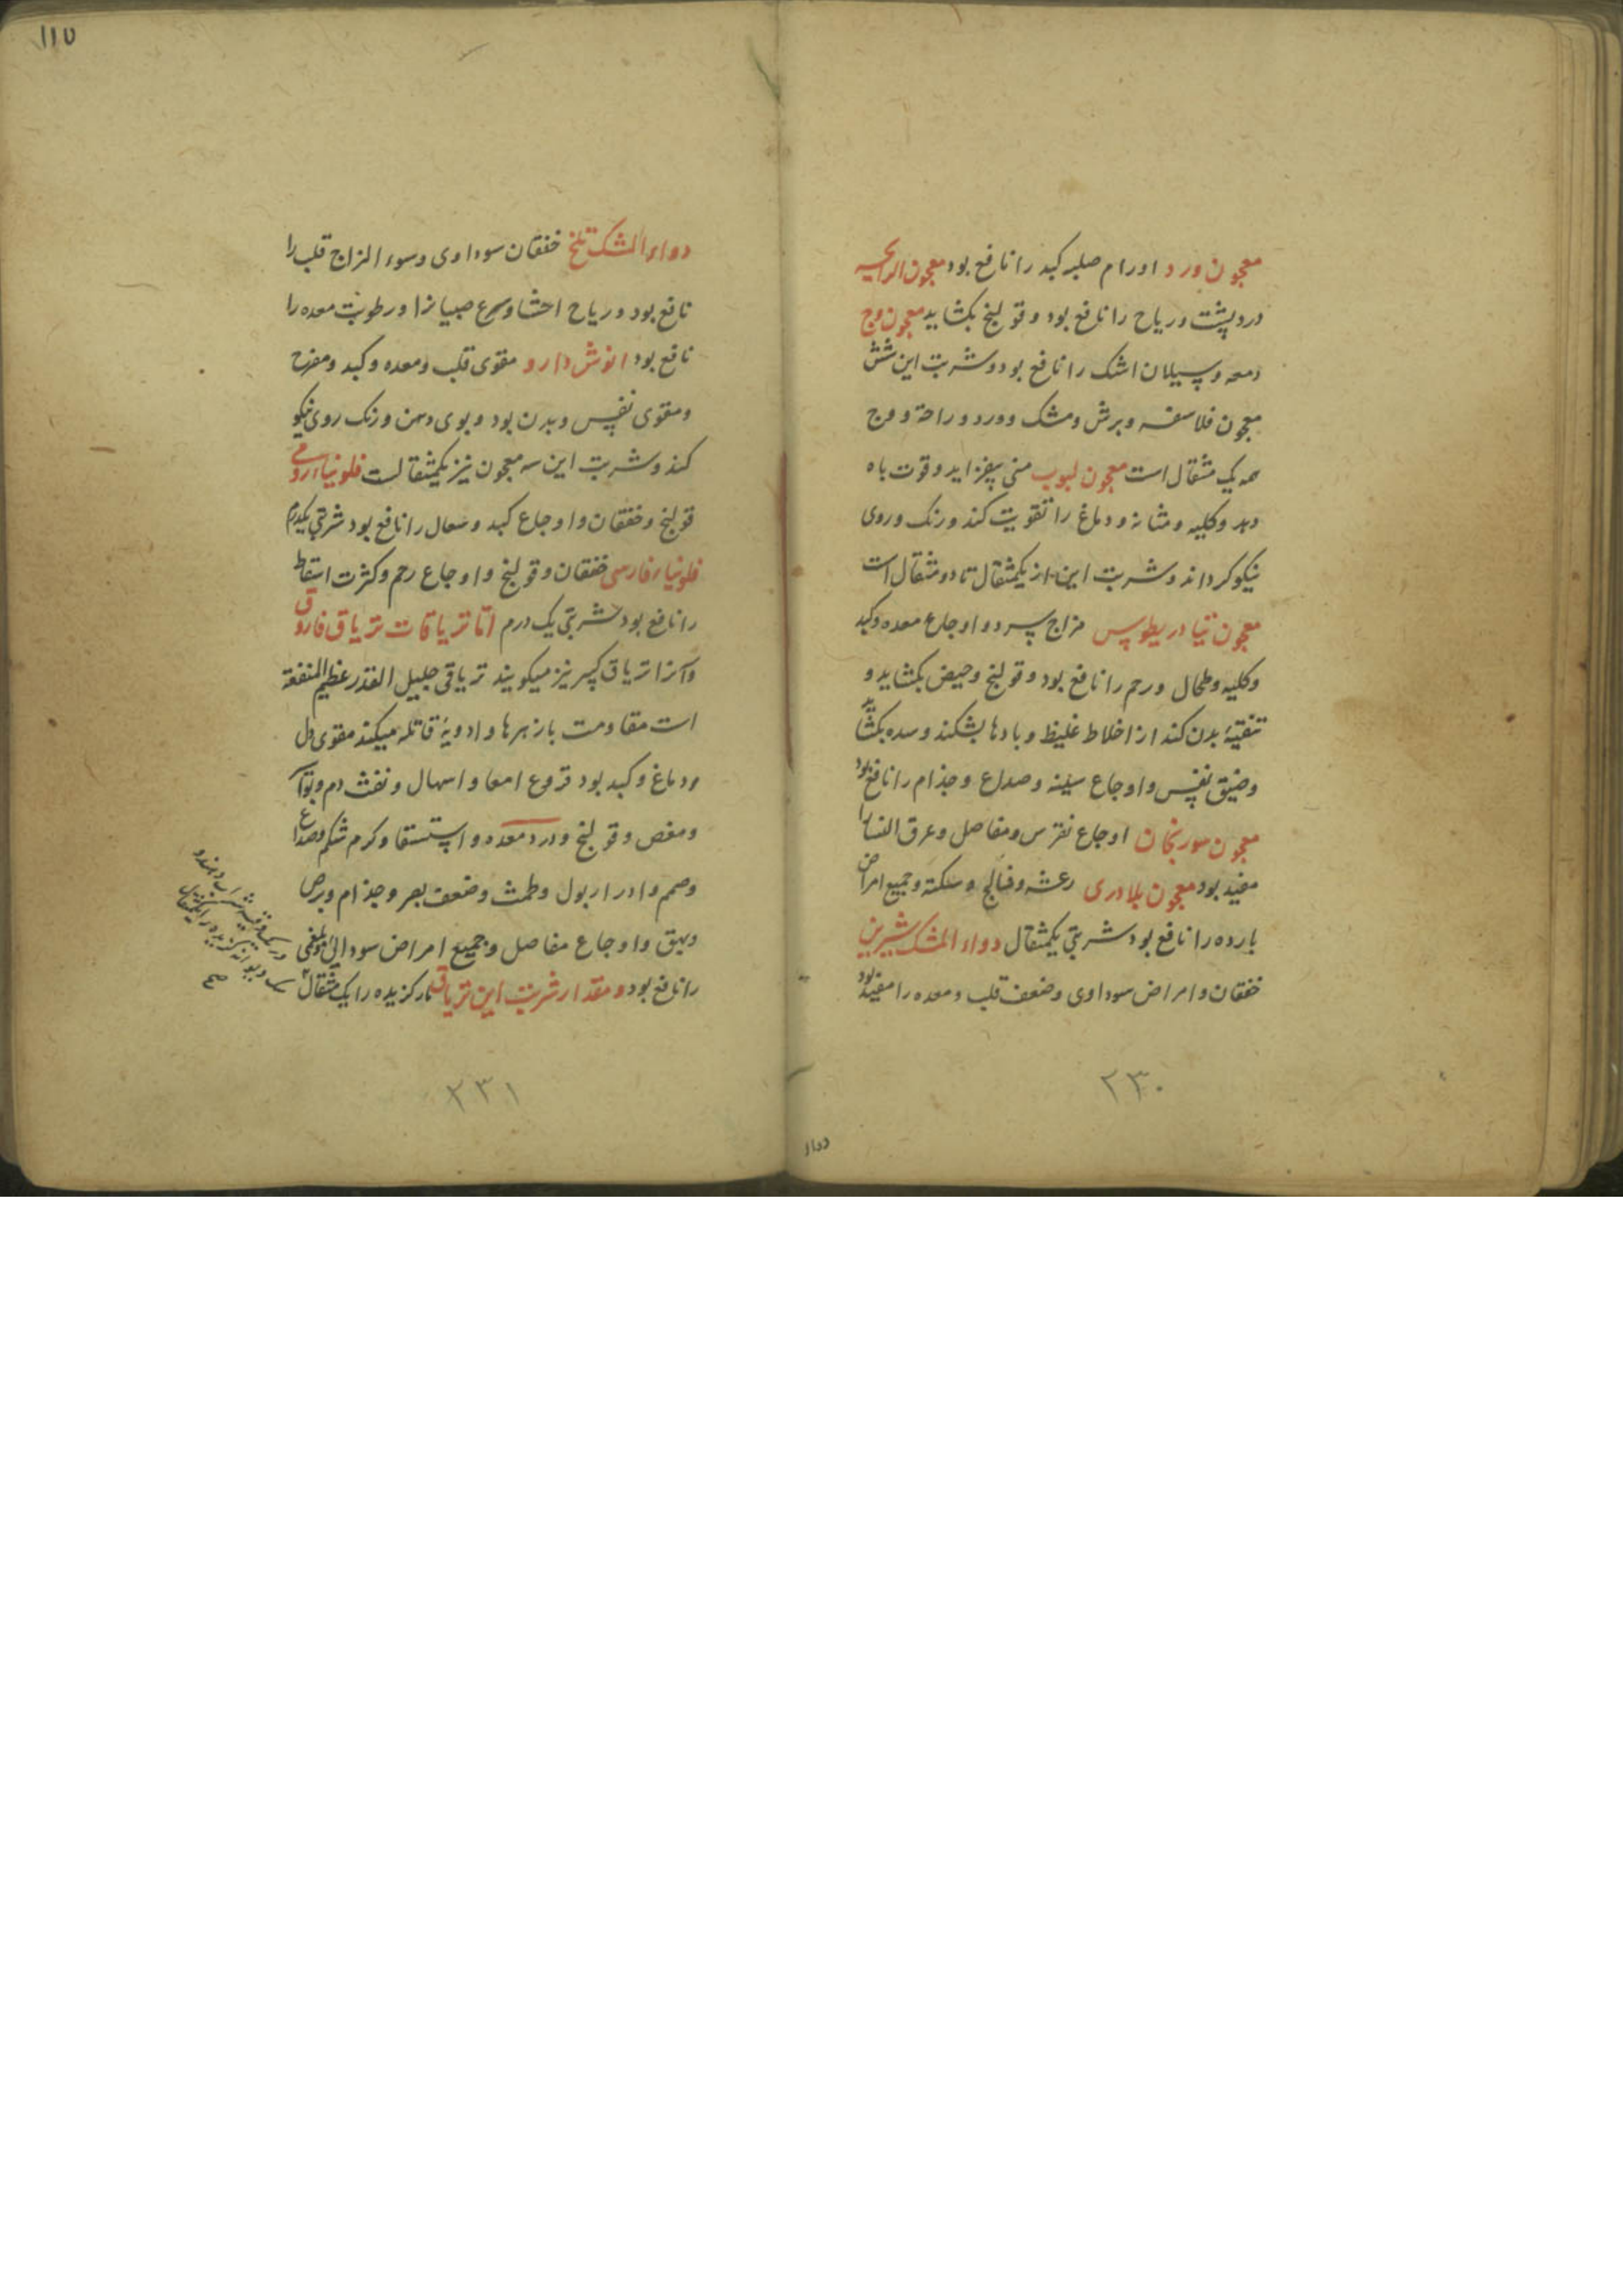 معجون ورد اورام صلبه کبد را نافع بود معجون الرایحه
درد پشت و ریاح را نافع بود و قولنج بکشاید معجون وج
دمعه و سیلان اشک را نافع بود و شربت این شش
معجون فلاسفه و برش و مشک و ورد و راحة و وج
همه یک مثقال است معجون لبوب منی بیفزاید و قوت باه
دهد و کلیه و مثانه و دماغ را تقویت کند و رنک و روی
نیکو کرداند و شربت این از یکمثقال تا دو مثقال است
معجون تیادریطوس مزاج سرد و اوجاع معده و کبد
و کلیه و طحال و رحم را نافع بود و قولنج و حیض بکشاید و
تنقیهٔ بدن کند از اخلاط غلیظ و بادها بشکند و سده بکشاید
و ضیق نفس و اوجاع سینه و صداع و جذام را نافع بود
معجون سورنجان اوجاع نقرس و مفاصل و عرق النسا را
مفید بود معجون بلادری رعشه و فالج و سکته و جمیع امراض
بارده را نافع بود شربتی یکمثقال دواء المشک شیرین
خفقان و امراض سوداوی و ضعف قلب و معده را مفید بود
۲۳۰
دواء
۱۱۵
دواء المشک تلخ خفقان سوداوی و سوء المزاج قلب را
نافع بود و ریاح احشا و صرع صبیانرا و رطوبت معده را
نافع بود انوش دارو مقوی قلب و معده و کبد و مفرح
و مقوی نفس و بدن بود و بوی دهن و رنک روی نیکو
کند و شربت این سه معجون نیز یکمثقالست فلونیاء رومی
قولنج و خفقان و اوجاع کبد و سعال را نافع بود شربتی یکدرم
فلونیاء فارسی خفقان و قولنج و اوجاع رحم و کثرت اسقاط
را نافع بود شربتی یک درم امّا تریاقات تریاق فاروق
و آنرا تریاق کبیر نیز میکویند تریاقی جلیل القدر عظیم المنفعة
است مقاومت بازهرها و ادویهٔ قاتله میکند مقوی دل
و دماغ و کبد بود قروع امعا و اسهال و نفث دم و بواسیر
و مغص و قولنج و درد معده و استسقا و کرم شکم و صداع
و صمم و ادرار بول و طمث و ضعف بصر و جذام و برص
و بهق و اوجاع مفاصل و جمیع امراض سودائی و بلغمی
را نافع بود و مقدار شربت این تریاق مار کزیده را یک مثقال
۲۳۱